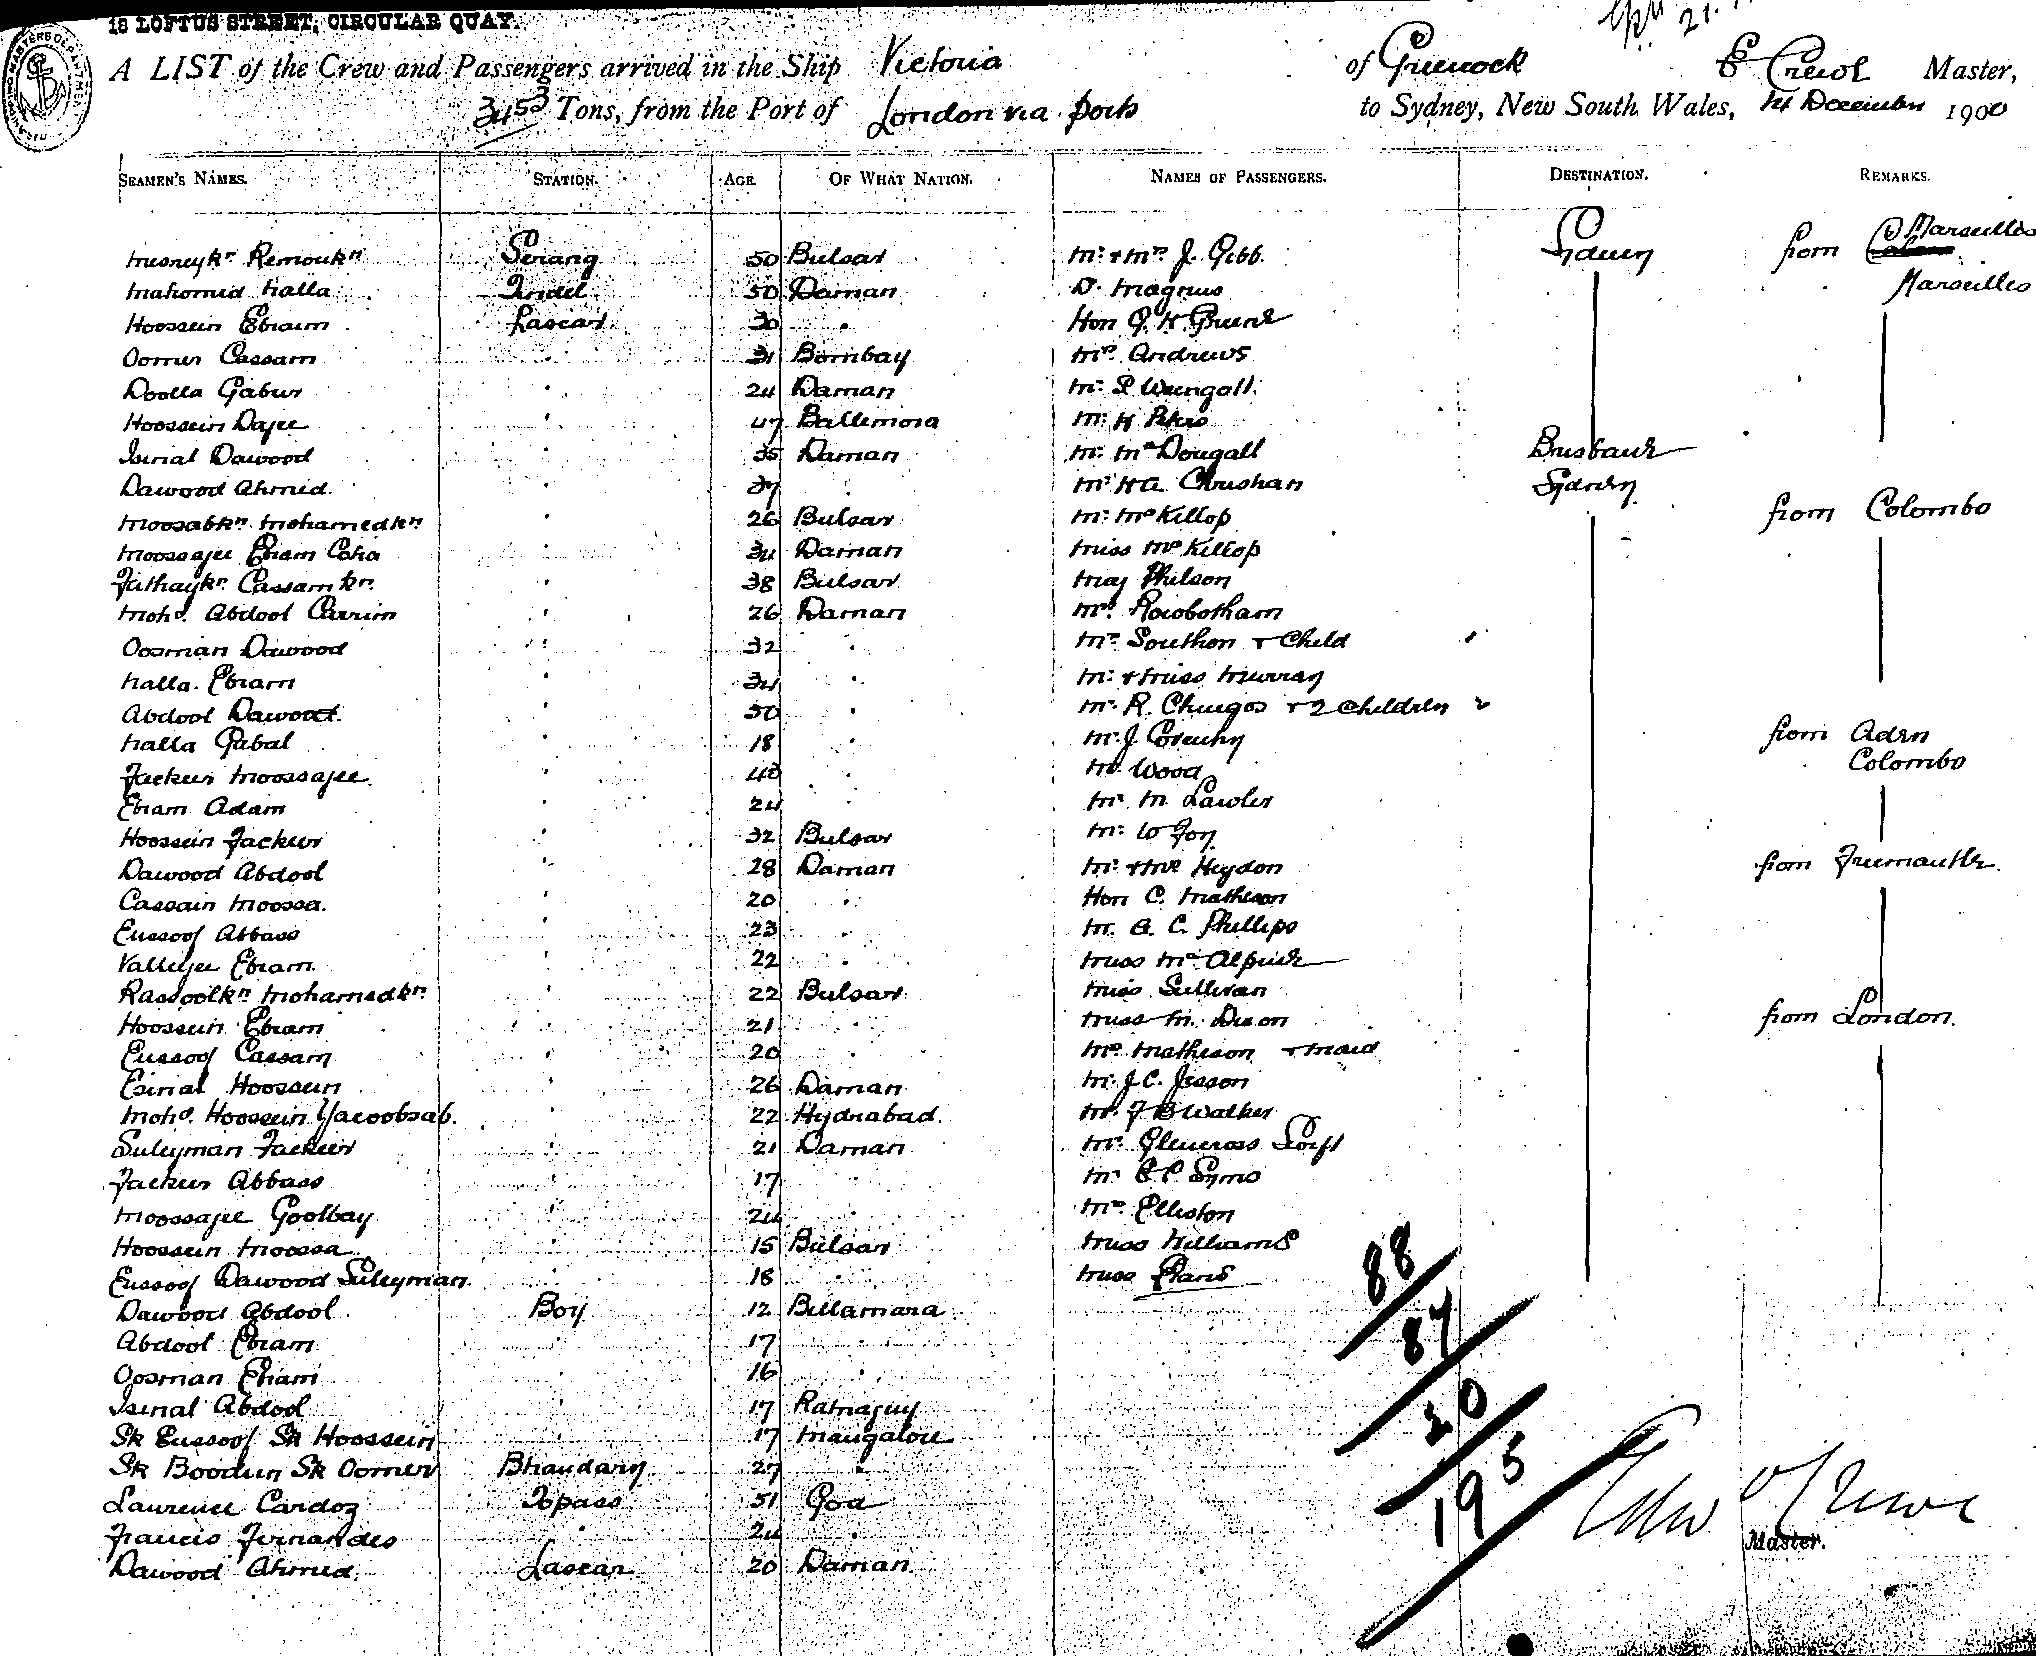 18 LOFTUS STREET, CIRCULAR QUAY.
A LIST of the Crew and Passengers arrived in the Ship Victoria of Greenock E Crewe Master,
3453 Tons, from the Port of London via ports to Sydney, New South Wales, 14 December 1900
SEAMEN'S NAMES. STATION. AGE OF WHAT NATION. NAMES OF PASSENGERS. DESTINATION. REMARKS.
Remoukn Serang 50 Bulsar Mr & Mrs J. Gibb. Sydney from Marseilles
Mahomed Nalla Tindel 50 Daman D. Magnus Marseilles
Hoossein Ebraim Lascar 30 " Hon G. H. Greene
Oomer Cassam " 31 Bombay Mrs Andrews
Doolla Gabur " 24 Daman Mr
Hoossein Dajee " 47 Ballemora Mr H Peters
Ismal Dawood " 35 Daman Mr McDougall Brisbane
Dawood Ahmed " 37 " Mr H A Christian Sydney
Moosabkn Mohamedkn " 26 Bulsar Mr McKillop from Colombo
Moossajee Ebram " 34 Daman Miss McKillop
Fathaykn Cassamkn " 38 Bulsar Maj Philson
Mohd. Abdool Carrim " 26 Daman Mr Rowbotham
Oosman Dawood " 32 " Mrs Southon & Child
Nalla Ebram " 34 " Mr & Miss Murray
Abdool Dawood " 50 " Mr R. & 2 Children
Nalla Gabal " 18 " Mr J. from Aden
Fackeer Moossajee " 40 " Mr Wood Colombo
Ebram Adam " 24 " Mr M. Lawler
Hoossein Fackeer " 32 Bulsar Mr W Joy
Dawood Abdool " 28 Daman Mr & Mrs Heydon from Freemantle
Cassain Moossa " 20 " Hon C. Matheson
Eussoof Abbass " 23 " Mr A. C. Phillips
Valleyjee Ebram " 22 " Miss McAlpine
Rassoolkn Mohamedkn " 22 Bulsar Miss Sullivan
Hoossein Ebram " 21 " Miss M. Dixon from London.
Eussoof Cassam " 20 " Mrs Matheson & Maid
Esmal Hoossein " 26 Daman Mr J. C. Jesson
Mohd. Hoossein Yacoobsab. " 22 Hydrabad Mr F B Walker
Suleyman Fackeer " 21 Daman Mr Glencross
Fackeer Abbass " 17 " Mr E P Syms
Moossajee Goolbay " 24 " Mrs Elliston
Hoossein Moossa " 15 Bulsar Miss Williams
Eussoof Dawood Suleyman " 18 " Miss Evans
Dawood Abdool Boy 12 Billamara
Abdool Ebram " 17 "
Oosman Ebram " 16 "
Ismal Abdool " 17 Ratnaguy
Sk Eussoof Sk Hoossein " 17 Mangalore
Sk Boodun Sk Oomer Bhandary 27 "
Laurence Cardoz Topass 51 Goa
Francis Fernandes " 24 "
Dawood Ahmed Lascar 20 Daman
88
87
20
195
Edw Crewe
Master.